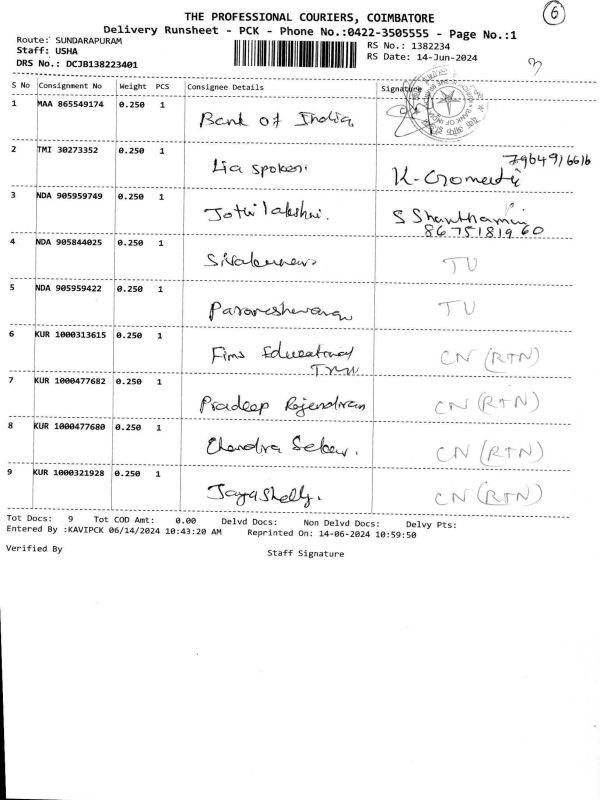 6
THE PROFESSIONAL COURIERS, COIMBATORE
Delivery Runsheet - PCK - Phone No.:0422-3505555 - Page No.:1
Route: SUNDARAPURAM
RS No.: 1382234
Staff: USHA
RS Date: 14-Jun-2024
3
DRS No.: DCJB138223401
S No Consignment No Weight PCS Consignee Details Signature
1 MAA 865549174 0.250 1 Bank of India
BANK OF INDIA
2 TMI 30273352 0.250 1 Lia spoken 7964916616
K-Gomathi
3 NDA 905959749 0.250 1 Jothilakshmi. S Shanthamini
8675181960
4 NDA 905844025 0.250 1 Sivakumar. TU
5 NDA 905959422 0.250 1 Parameshwaran TU
6 KUR 1000313615 0.250 1 Fims Educational CN (RTN)
7 KUR 1000477682 0.250 1 Pradeep Rajendiran CN (RTN)
8 KUR 1000477680 0.250 1 Chandra Sekar. CN (RTN)
9 KUR 1000321928 0.250 1 Jaya CN (RTN)
Tot Docs: 9 Tot COD Amt: 0.00 Delvd Docs: Non Delvd Docs: Delvy Pts:
Entered By :KAVIPCK 06/14/2024 10:43:20 AM Reprinted On: 14-06-2024 10:59:50
Verified By Staff Signature